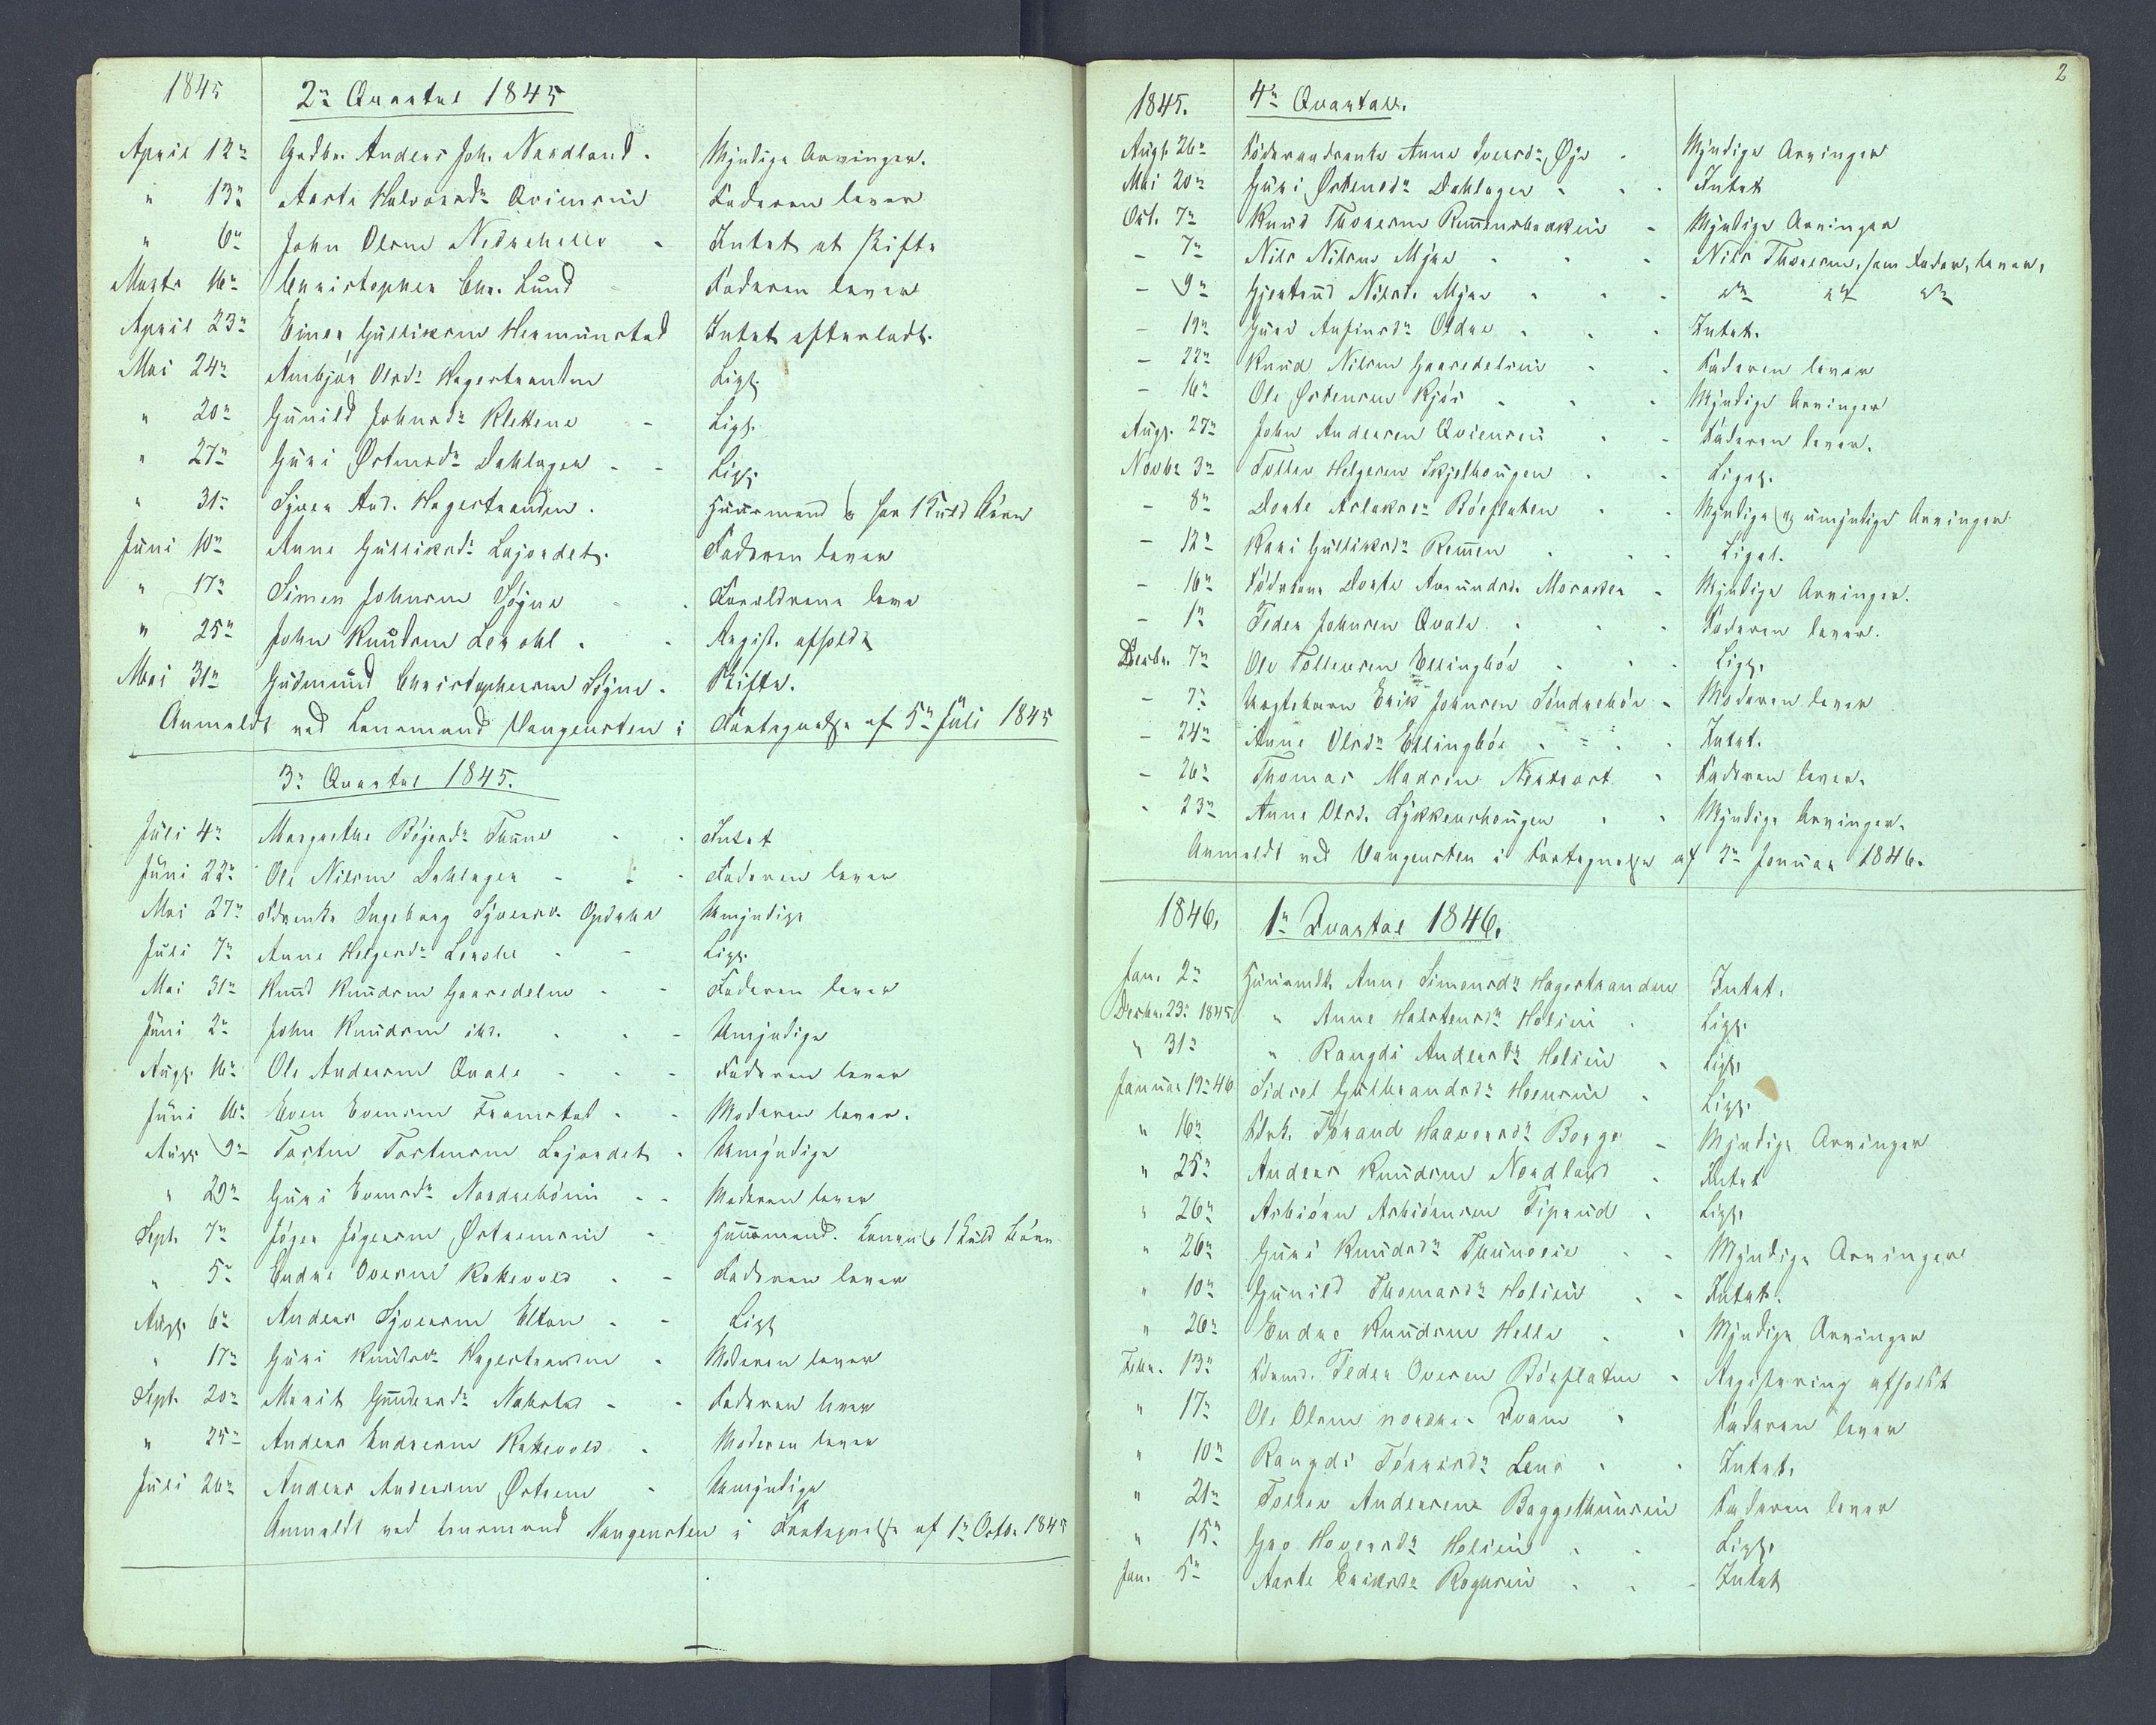 1845 2n Quartal 1845
April 12n Gadbr. Anders Joh. Nordland. Myndige Arvinger.
" 13n Aaste Halvorsdr Qviensrud Faderen lever
" 6n John Olsen Nedrehelle Intet at skifte
Marts 16n Christopher Chr. Lund Faderen lever
April 23n Einer Gulliksen Hermunstad Intet efterladt.
Mai 24n Ambjör Olsdr Hagestranden Ligs.
" 20n Gunild Johnsdr Klettene Ligs.
" 27n Guri Østensdr Dahlagen Ligs.
" 31n Syver And. Hagestranden. Huusmand har 1 Kuld Börn
Juni 10n Anne Gulliksdr Lajordet. Faderen lever
" 17n Simen Johnsen Søyne Forældrene leve
" 25n John Knudsen Lerohl. Regist. afholdt
Mai 31n Gudmund Christophersen Søyne. Skifte.
Anmeldt ved Lensmand Vangensten i Fortegnelse af 5n Juli 1845
3n Quartal 1845.
Juli 4n Margrethe Böjesdr Thune Intet
Juni 22n Ole Nilsen Dahlagen Faderen lever
Mai 27n Ingeborg Syversdr Opdahl Umyndige
Juli 7n Anne Helgesdr Lerohl Ligs.
Mai 31n Knud Knudsen Gaardelsen Faderen lever
Juni 2n John Knudsen ibd. Umyndige
Augs. 16n Ole Andersen Qvale Faderen lever
Juni 16n Even Evensen Framstad Moderen lever.
Augs. 9n Torsten Torstensen Lajordet Umyndige
" 29n Guri Evensdr Nordrehöun Moderen lever
Septr. 7n Jögen Jögensen Østremsrud Huusmand. Konen 1 Kuld Börn
" 5n Endre Oversen Rakevold Faderen lever
Augs. 6n Anders Syversen Elton Ligs.
" 17n Guri Knudsdr Hagestranden Moderen lever
Sept. 20n Marit Gundersdr Faderen lever
" 25n Anders Endresen Rakevold Moderen lever
Juli 26n Anders Andersen Østrem Umyndige
Anmeldt ved Lensmand Vangensten i Fortegnelse af 1n Octbr 1845
2
1845. 4n Quartal.
Augs. 26n Föderaadsenke Anne Iversdr Øye Myndige Arvinger
Mai 20n Guri Østensdr Dahlagen Intet
Oct. 7n Knud Thoresen Remmensbakken Myndige Arvinger
– 7n Nils Nilsen Myre Nils Thoresen, som Fader, lever,
– 9n Gjertrud Nilsd. Myre do do do
– 19n Guri Anfinsdr Oldre Intet.
– 22n Knud Nilsen Gaardelsen Faderen lever
– 16n Ole Østensen Kjös Myndige Arvinger
Augs. 27n John Andersen Qviensrud Faderen lever.
Novbr 3n Tollev Helgesen Skjelhougen Ligel.
– 8n Dorte Aslaksdr Böeflaten Myndige og umyndige Arvinger
– 12n Kari Gulliksdr Remmen Ligel.
– 16n Dorte Amundsd. Moraker Myndige Arvinger.
– 1n Peder Johnsen Qvale Faderen lever.
Decbr. 7n Ole Tollevsen Ellingböe Ligs.
– 7n Erik Johnsen Söndreböe Moderen lever
– 24n Anne Olsdr Ellingböe Intet.
– 26n Thomas Madsen Faderen lever.
" 23n Anne Olsd. Lykkenshougen Myndige Arvinger.
Anmeldt ved Vangensten i Fortegnelse af 2n Januar 1846.
1846. 1n Quartal 1846.
Jan. 2n Anne Simensdr Hagestranden Intet.
Decbr. 23n 1845 " Anne Halstensdr Helien Ligs.
" 31n " Rangdi Andersdr Helien Ligs.
Januar 19n 46 Sidsel Gulbrandsdr Hoensrud Ligs.
" 16n Töraud Haavorsdr Berge Myndige Arvinger
" 25n Anders Knudsen Nordland Intet
" 26n Asbiörn Asbiörnsen Tiprud Ligs.
" 26n Guri Knudsdr Thunelie Myndige Arvinger
" 10n Gunild Thomasdr Helien Intet.
" 26n Endre Knudsen Helle Myndige Arvinger
Febr. 13n Peder Oversen Böeflaten Registering afholdt
" 17n Ole Olsen nordre Qvam Faderen lever
" 10n Rangdi Tönnesdr Lene Intet.
" 21n Tollev Andersen Baggethunsrud Faderen lever
" 15n Gro Hoversdr Helien Ligs.
Jan. 5n Aaste Eriksdr Rognsrud Intet